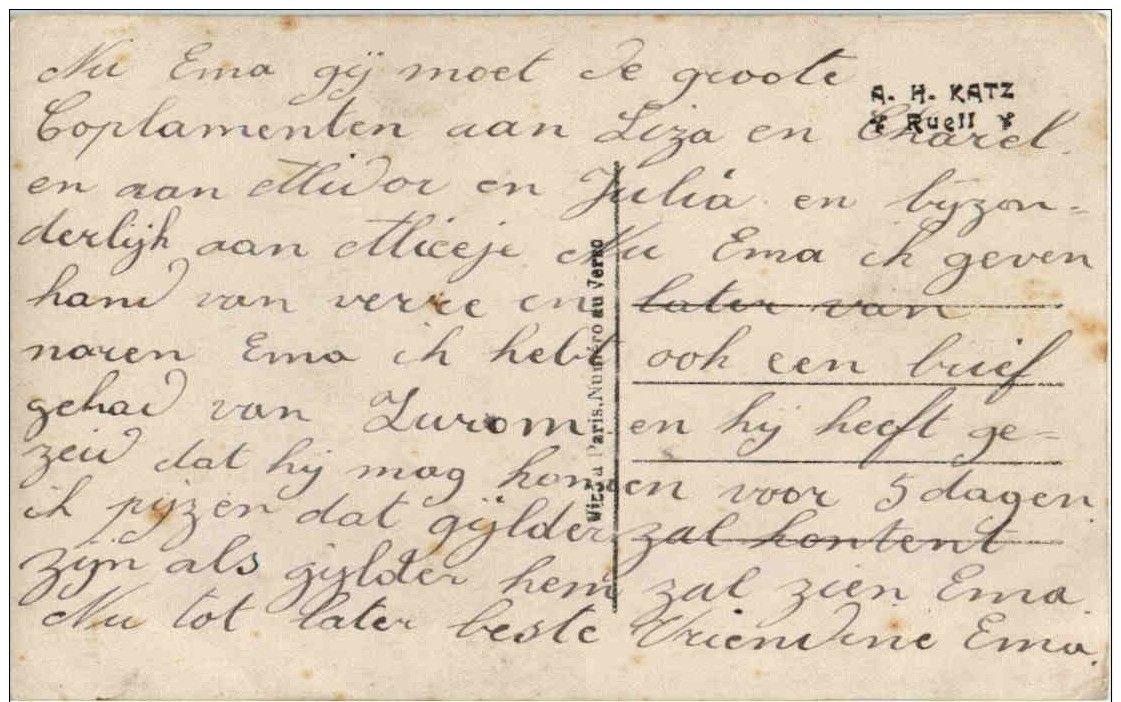 Nu Ema gij moet de groote
A. H. KATZ
Ruell
Coplamenten aan Liza en Charel.
en aan Midor en Julia en bijzon-
derlijk aan Miceje Nu Ema ik geven
hand van verre en later van
naren Ema ik hebt ook een brief
gehad van Zurom en hij heeft ge-
zeid dat hij mag komen voor 5 dagen
ik pijzen dat gijlder zal kontent
zijn als gijlder hem zal zien Ema.
Nu tot later beste Vriendine Ema.
Paris. Numéro au Verso